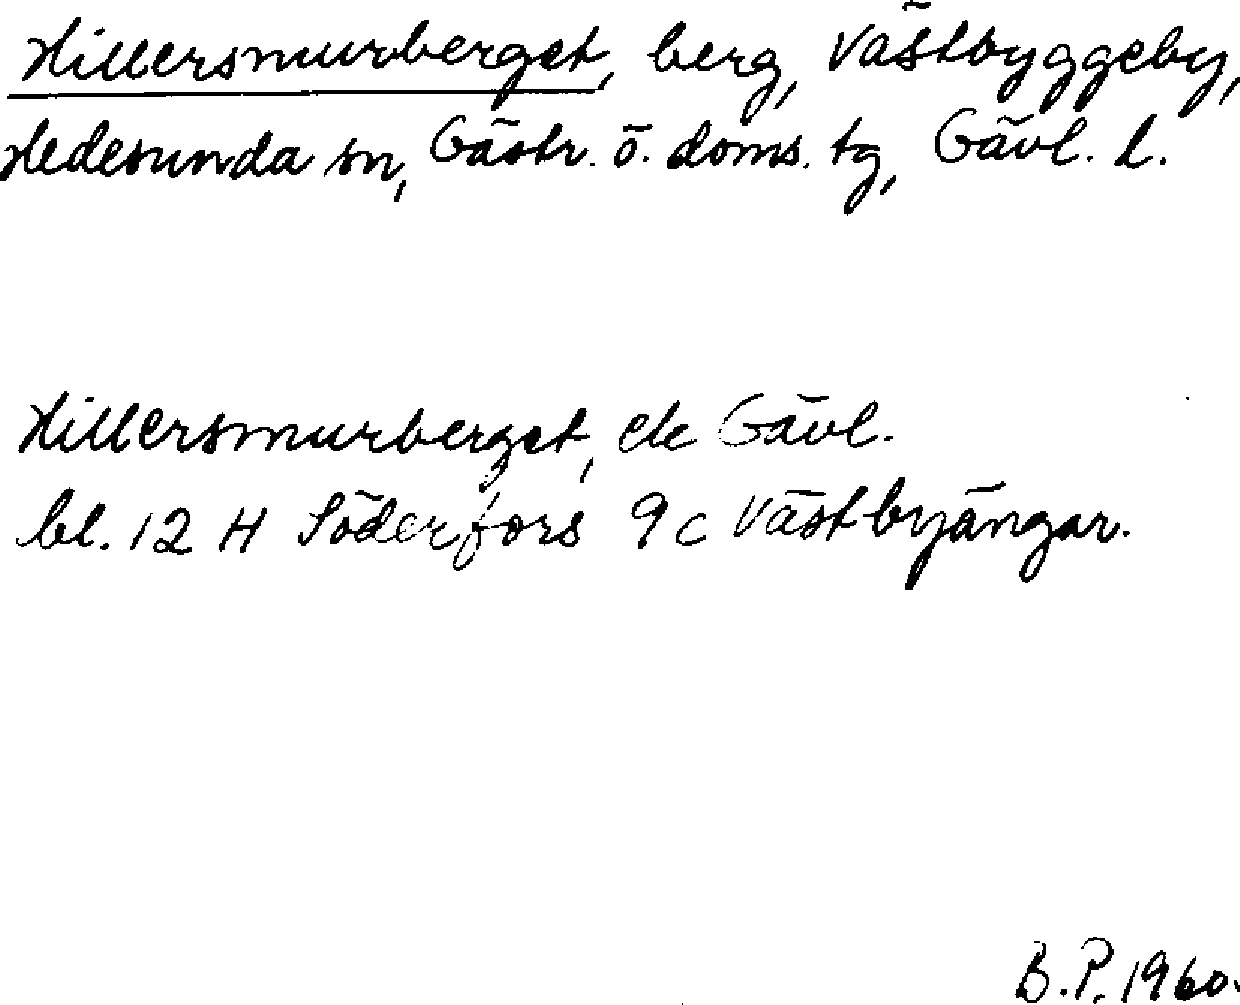 Hillersmurberget, berg, Västbyggeby,
Hedesunda sn, Gästr. ö. doms. tg, Gävl. l.
Hillersmurberget, ek Gävl.
bl. 12 H Söderfors 9 c Västbyängar.
B.P. 1960.